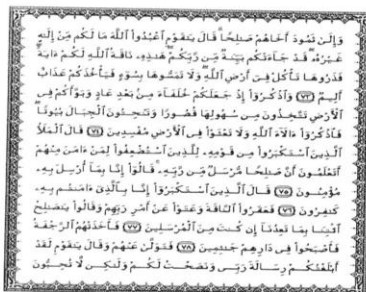 وَإِلَىٰ ثَمُودَ أَخَاهُمْ صَـٰلِحًا قَالَ يَـٰقَوْمِ ٱعْبُدُوا۟ ٱللَّهَ مَا لَكُم مِّنْ إِلَـٰهٍ
غَيْرُهُۥ قَدْ جَآءَتْكُم بَيِّنَةٌ مِّن رَّبِّكُمْ هَـٰذِهِۦ نَاقَةُ ٱللَّهِ لَكُمْ ءَايَةً
فَذَرُوهَا تَأْكُلْ فِىٓ أَرْضِ ٱللَّهِ وَلَا تَمَسُّوهَا بِسُوٓءٍ فَيَأْخُذَكُمْ عَذَابٌ
أَلِيمٌ ٧٣ وَٱذْكُرُوٓا۟ إِذْ جَعَلَكُمْ خُلَفَآءَ مِنۢ بَعْدِ عَادٍ وَبَوَّأَكُمْ فِى
ٱلْأَرْضِ تَتَّخِذُونَ مِن سُهُولِهَا قُصُورًا وَتَنْحِتُونَ ٱلْجِبَالَ بُيُوتًا
فَٱذْكُرُوٓا۟ ءَالَآءَ ٱللَّهِ وَلَا تَعْثَوْا۟ فِى ٱلْأَرْضِ مُفْسِدِينَ ٧٤ قَالَ ٱلْمَلَأُ
ٱلَّذِينَ ٱسْتَكْبَرُوا۟ مِن قَوْمِهِۦ لِلَّذِينَ ٱسْتُضْعِفُوا۟ لِمَنْ ءَامَنَ مِنْهُمْ
أَتَعْلَمُونَ أَنَّ صَـٰلِحًا مُّرْسَلٌ مِّن رَّبِّهِۦ قَالُوٓا۟ إِنَّا بِمَآ أُرْسِلَ بِهِۦ
مُؤْمِنُونَ ٧٥ قَالَ ٱلَّذِينَ ٱسْتَكْبَرُوٓا۟ إِنَّا بِٱلَّذِىٓ ءَامَنتُم بِهِۦ
كَـٰفِرُونَ ٧٦ فَعَقَرُوا۟ ٱلنَّاقَةَ وَعَتَوْا۟ عَنْ أَمْرِ رَبِّهِمْ وَقَالُوا۟ يَـٰصَـٰلِحُ
ٱئْتِنَا بِمَا تَعِدُنَآ إِن كُنتَ مِنَ ٱلْمُرْسَلِينَ ٧٧ فَأَخَذَتْهُمُ ٱلرَّجْفَةُ
فَأَصْبَحُوا۟ فِى دَارِهِمْ جَـٰثِمِينَ ٧٨ فَتَوَلَّىٰ عَنْهُمْ وَقَالَ يَـٰقَوْمِ لَقَدْ
أَبْلَغْتُكُمْ رِسَالَةَ رَبِّى وَنَصَحْتُ لَكُمْ وَلَـٰكِن لَّا تُحِبُّونَ